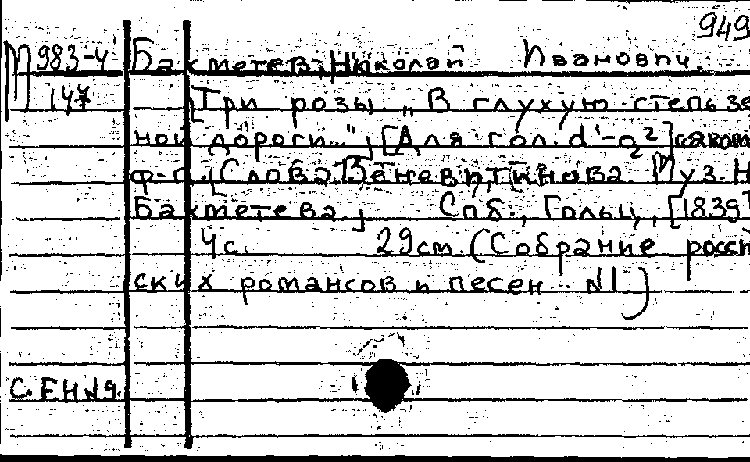 949
М 983-4 Бахметев, Николай Иванович.
147 [Три розы „В глухую степь зе
ной дороги..."], [Для гол. d¹-g²] с аком
ф-п. [Слова Веневитинова. Муз. Н
Бахметева.] Спб., Гольц, [1839]
4с. 29см. (Собрание россий
ских романсов и песен №1)